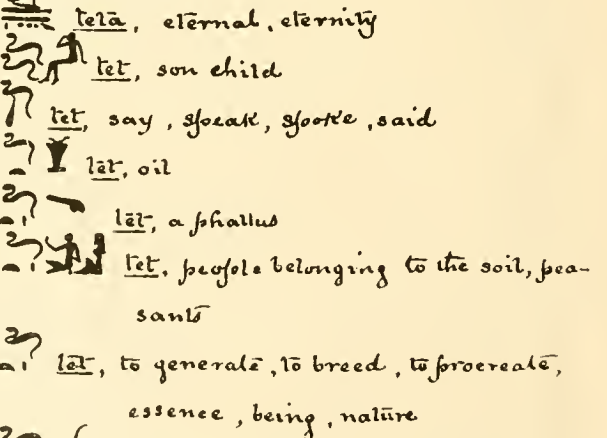 teta, eternal, eternity
tet, son child
tet, say, speak, spoke, said
tet, oil
tet, a phallus
tet, people belonging to the soil, pea-
sants
tet, to generate, to breed, to procreate,
essence, being, nature